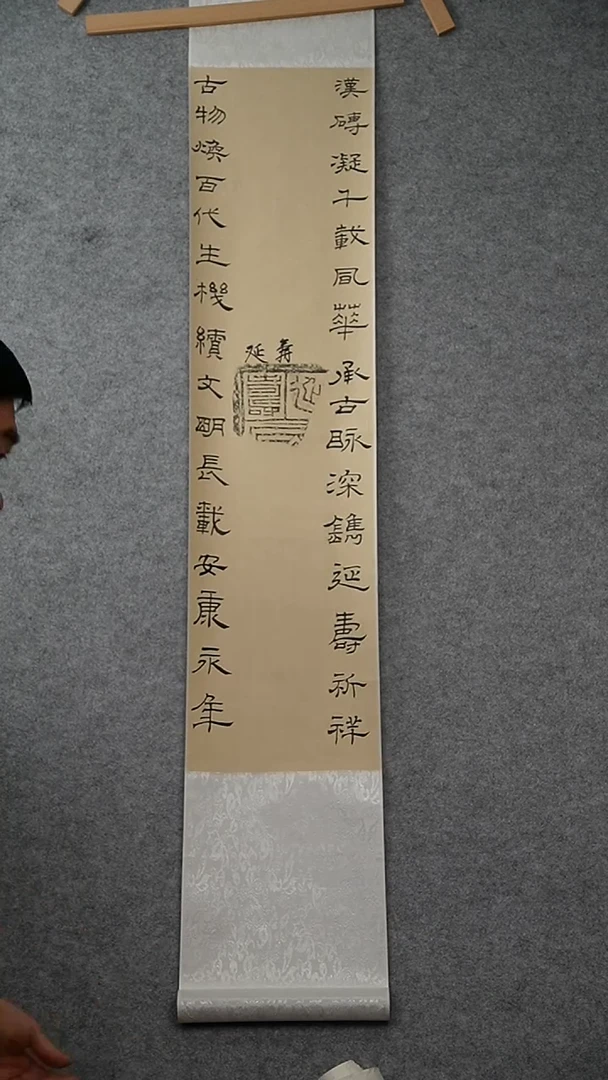 漢磚凝千載風華承古脉深鐫延壽祈祥
延壽
古物煥百代生機續文明長載安康永年